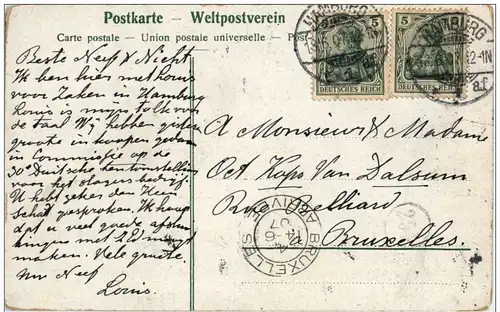 Postkarte - Weltpostverein
Carte postale - Union postale universelle - Post
HAMBURG
5 5
DEUTSCHES REICH DEUTSCHES REICH
12-1N
* 1 a.f.
Beste Neef & Nicht
Ik ben hier met Louis
voor Zaken in Hamburg
Louis is mijn tolk voor
de taal Wij hebben gister
groote in koopen gedaan
in Commissie op de
30e Duitsche tentoonstelling
voor het slagers bedrijf.
U hebt zeker den Heer
Schat gesproken. Ik hoop
dat u veel goede
met ZEd
maken. Vele groete.
Uw Neef
Louis.
A Monsieur & Madame
Oct Kaps Van Dalsum
Rue Belliard
Bruxelles.
BRUXELLES
ARRIVÉE